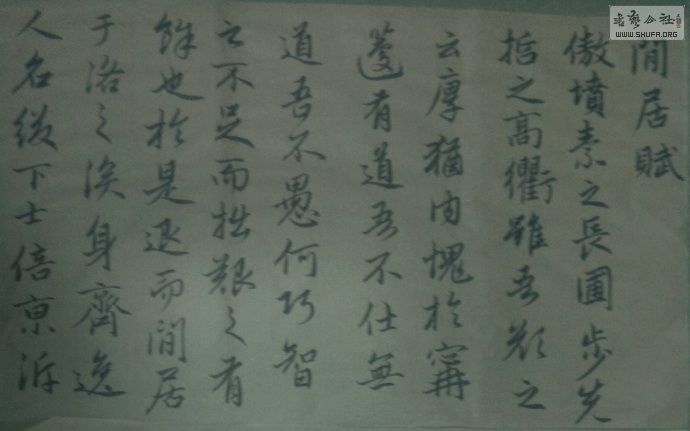 閒居賦
傲墳素之長圃步先
哲之高衢雖吾顏之
云厚猶內愧於甯
蘧有道吾不仕無
道吾不愚何巧智
之不足而拙艱之有
餘也於是退而閒居
于洛之涘身齊逸
人名綴下士倍京泝
WWW.SHUFA.ORG